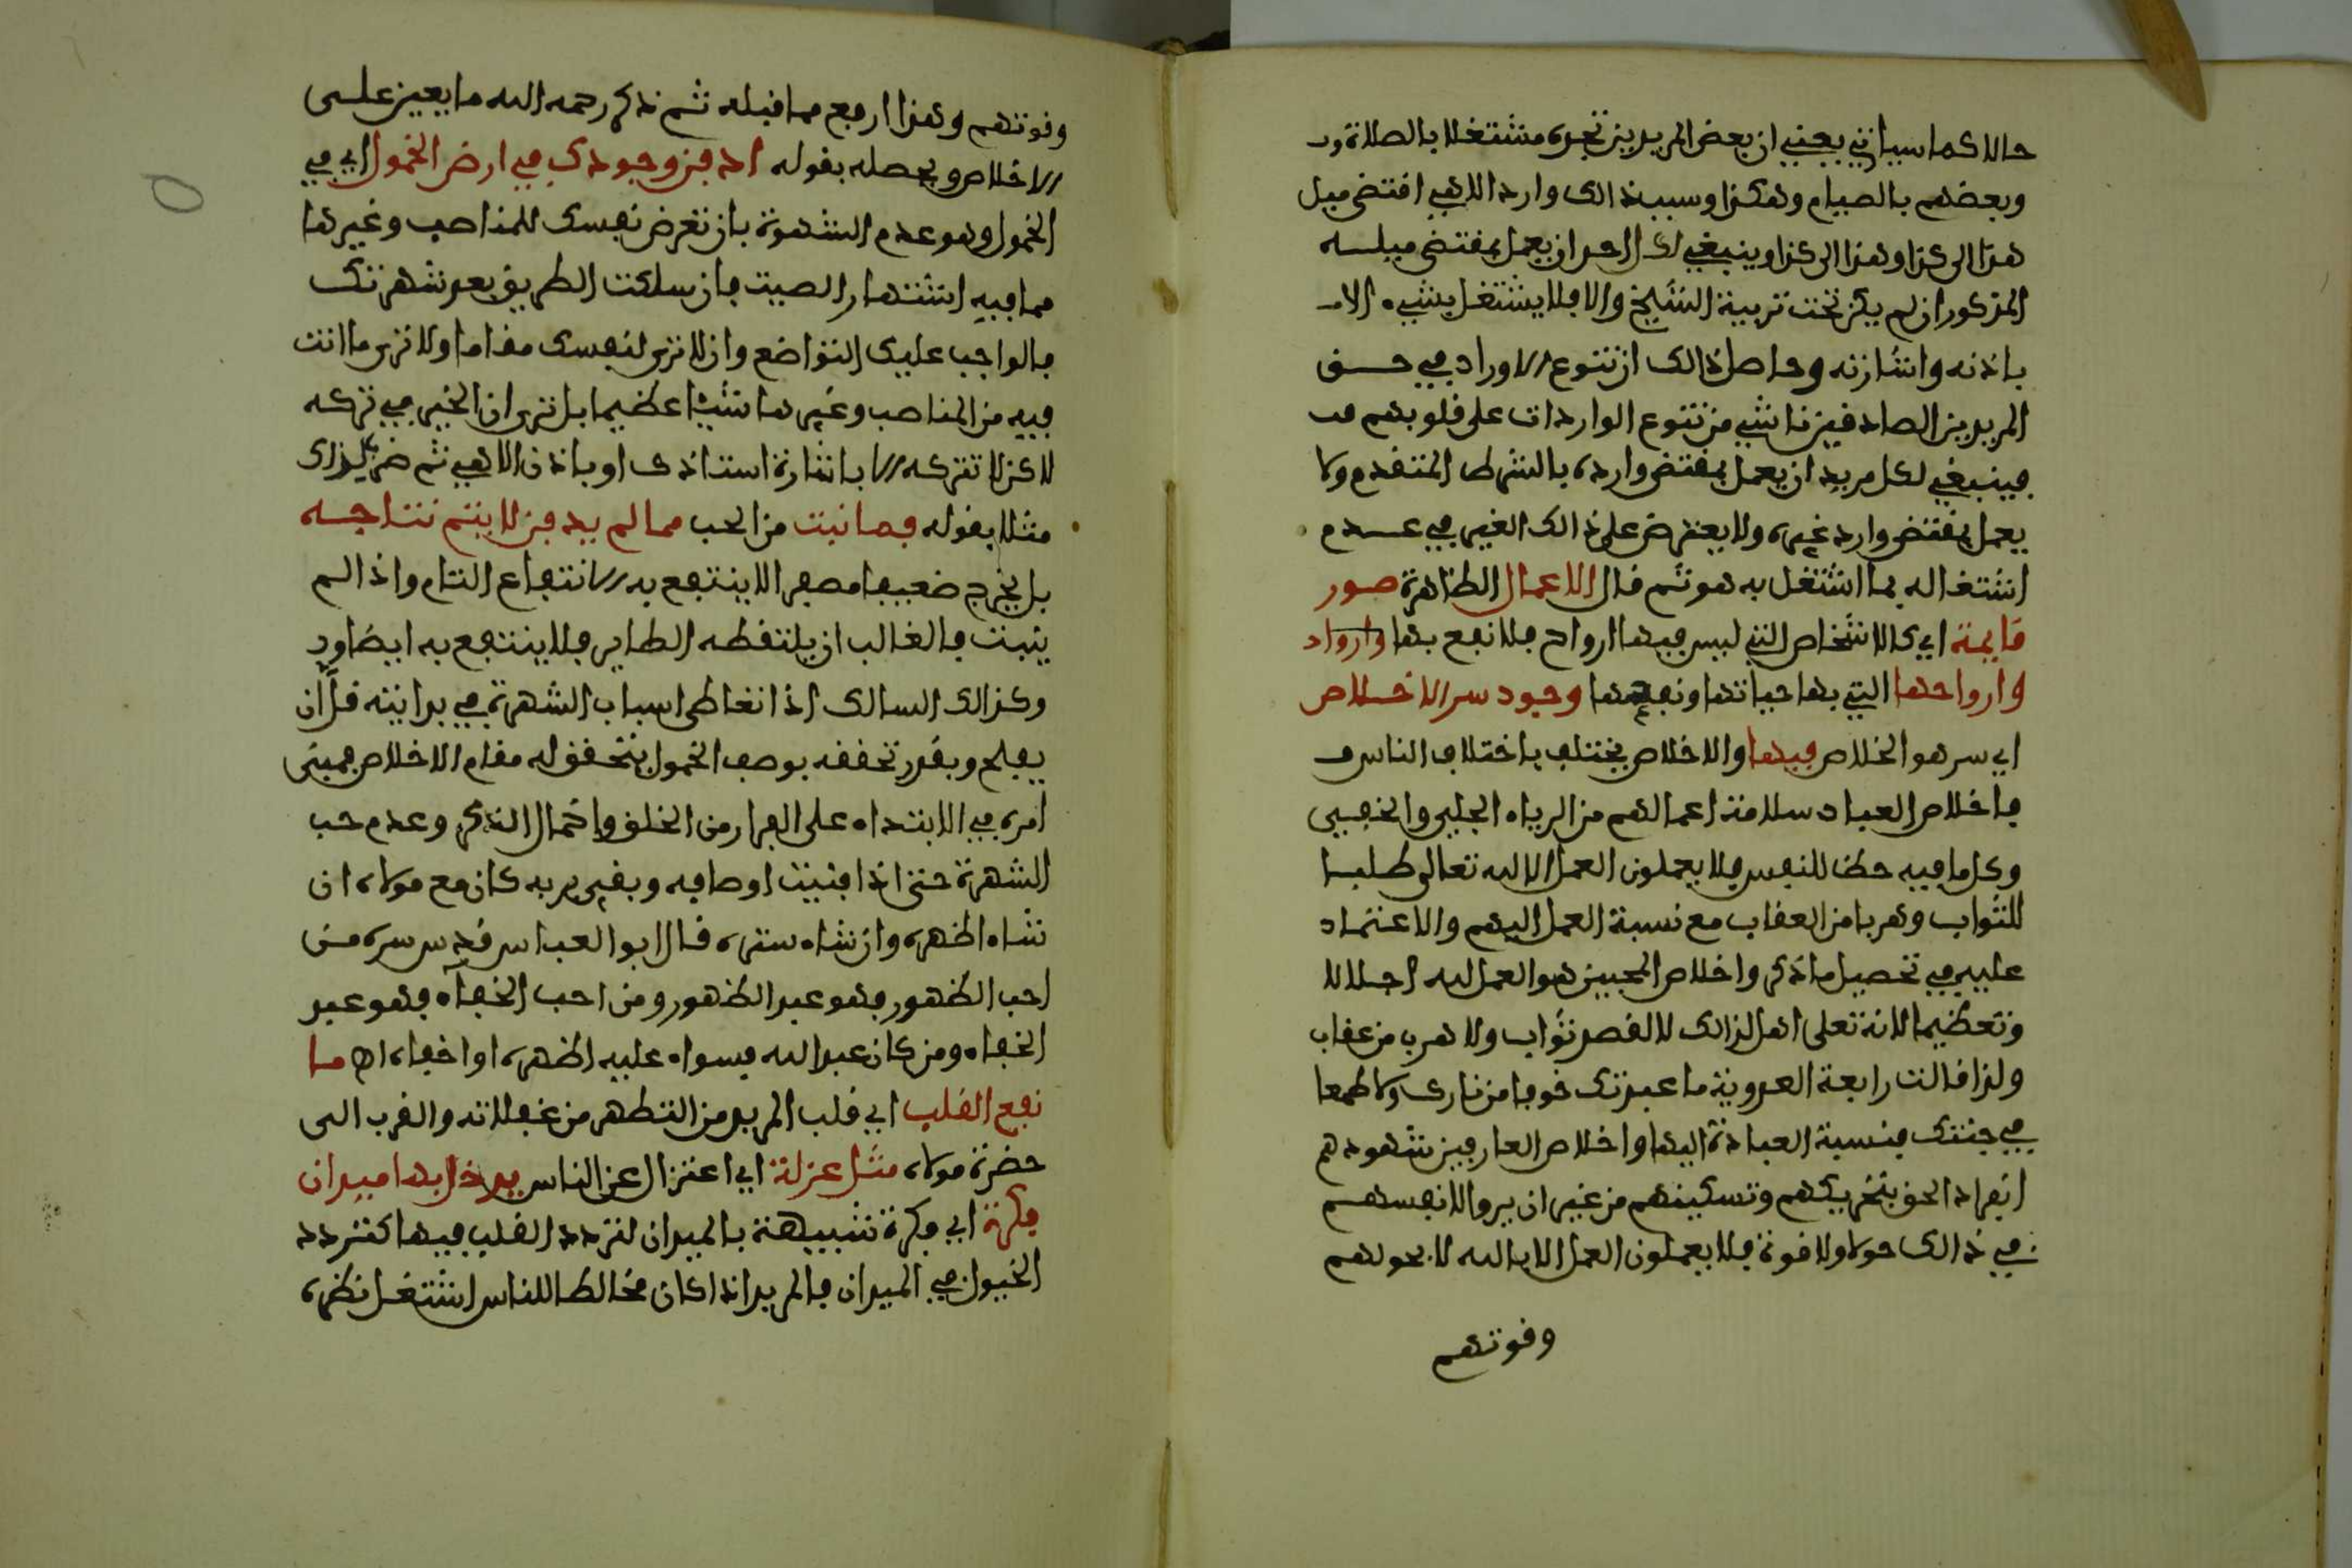 حالا كما سياتي يعني ان بعض المريدين تجده مشتغلا بالصلاة و
وبعضهم بالصيام وهكذا وسبب ذالك وارد الاهي اقتضى ميل
هذا الى كذا وهذا الى كذا وينبغي لكل احد ان يعمل بمقتضى ميله
المذكور ان لم يكن تحت تربية الشيخ والا فلا يشتغل بشيء الا
باذنه واشارته وحاصل ذالك ان تنوع الاوراد في حق
المريدين الصادقين ناشي من تنوع الواردات على قلوبهم ف
فينبغي لكل مريد ان يعمل بمقتضى وارده بالشرط المتقدم ولا
يعمل بمقتضى وارد غيره ولا يعترض على ذالك الغير في عدم
اشتغاله بما اشتغل به هو ثم قال الاعمال الظاهرة صور
قايمة اي كالاشخاص التي ليس فيها ارواح فلا نفع بها وارواد
وارواحها التي بها حياتها ونفعها وجود سر الاخلاص
اي سر هو الخلاص فيها والاخلاص يختلف باختلاف الناس ف
فاخلاص العباد سلامة اعمالهم من الرياء الجلي والخفي
وكل ما فيه حظ للنفس فلا يعملون العمل الا لله تعالى طلبا
للثواب وهربا من العقاب مع نسبة العمل اليهم والاعتماد
عليه في تحصيل ما ذكر واخلاص المحبين هو العمل لله اجلالا
وتعظيما لانه تعلى اهل لذالك لا لقصد ثواب ولا هرب من عقاب
ولذا قالت رابعة العدوية ما عبدتك خوفا من نارك ولا طمعا
في جنتك فنسبة العبادة اليها واخلاص العارفين شهودهم
انفراد الحق بتحريكهم وتسكينهم من غير ان يروا لانفسهم
في ذالك حولا ولا قوة فلا يعملون العمل الا بالله لا بحولهم
وقوتهم
وقوتهم وهذا ارفع مما قبله ثم ذكر رحمه الله ما يعين على
الاخلاص ويحصله بقوله ادفن وجودك في ارض الخمول اي في
الخمول وهو عدم الشهوة بان تعرض نفسك للمناصب وغيرها
مما فيه اشتهار الصيت فان سلكت الطريق بعد شهرتك
فالواجب عليك التواضع وان لا ترى لنفسك مقاما ولا ترى ما انت
فيه من المناصب وغيرها شيئا عظيما بل ترى ان الخير في تركه
لاكن لا تتركه الا باشارة استاذك او باذن الاهي ثم ضرب لذالك
مثلا بقوله فما نبت من الحب مما لم يدفن لا يتم نتاجه
بل يخرج ضعيفا مصفرا لا ينتفع به الانتفاع التام واذا لم
ينبت فالغالب ان يلتقطه الطاير فلا ينتفع به ايضا و
وكذالك السالك اذا تعاطى اسباب الشهرة في بدايته قل ان
يفلح وبقدر تحققه بوصف الخمول يتحقق له مقام الاخلاص فمبنى
امره في الابتداء على الفرار من الخلق واخمال الذكر وعدم حب
الشهرة حتى اذا افنيت اوصافه وبقي بربه كان مع مولاه ان
شاء اظهره وان شاء ستره قال ابو العباس قدس سره من
احب الظهور فهو عبد الظهور ومن احب الخفاء فهو عبد
الخفاء ومن كان عبد الله فسواء عليه اظهره او اخفاه اه ما
نفع القلب اي قلب المريد من التطهر من غفلاته والقرب الى
حضرة مولاه مثل عزلة اي اعتزال عن الناس يدخل بها ميدان
فكرة اي فكرة شبيهة بالميدان لتردد القلب فيها كتردد
الخيول في الميدان فالمريد اذا كان مخالطا للناس اشتغل نظره